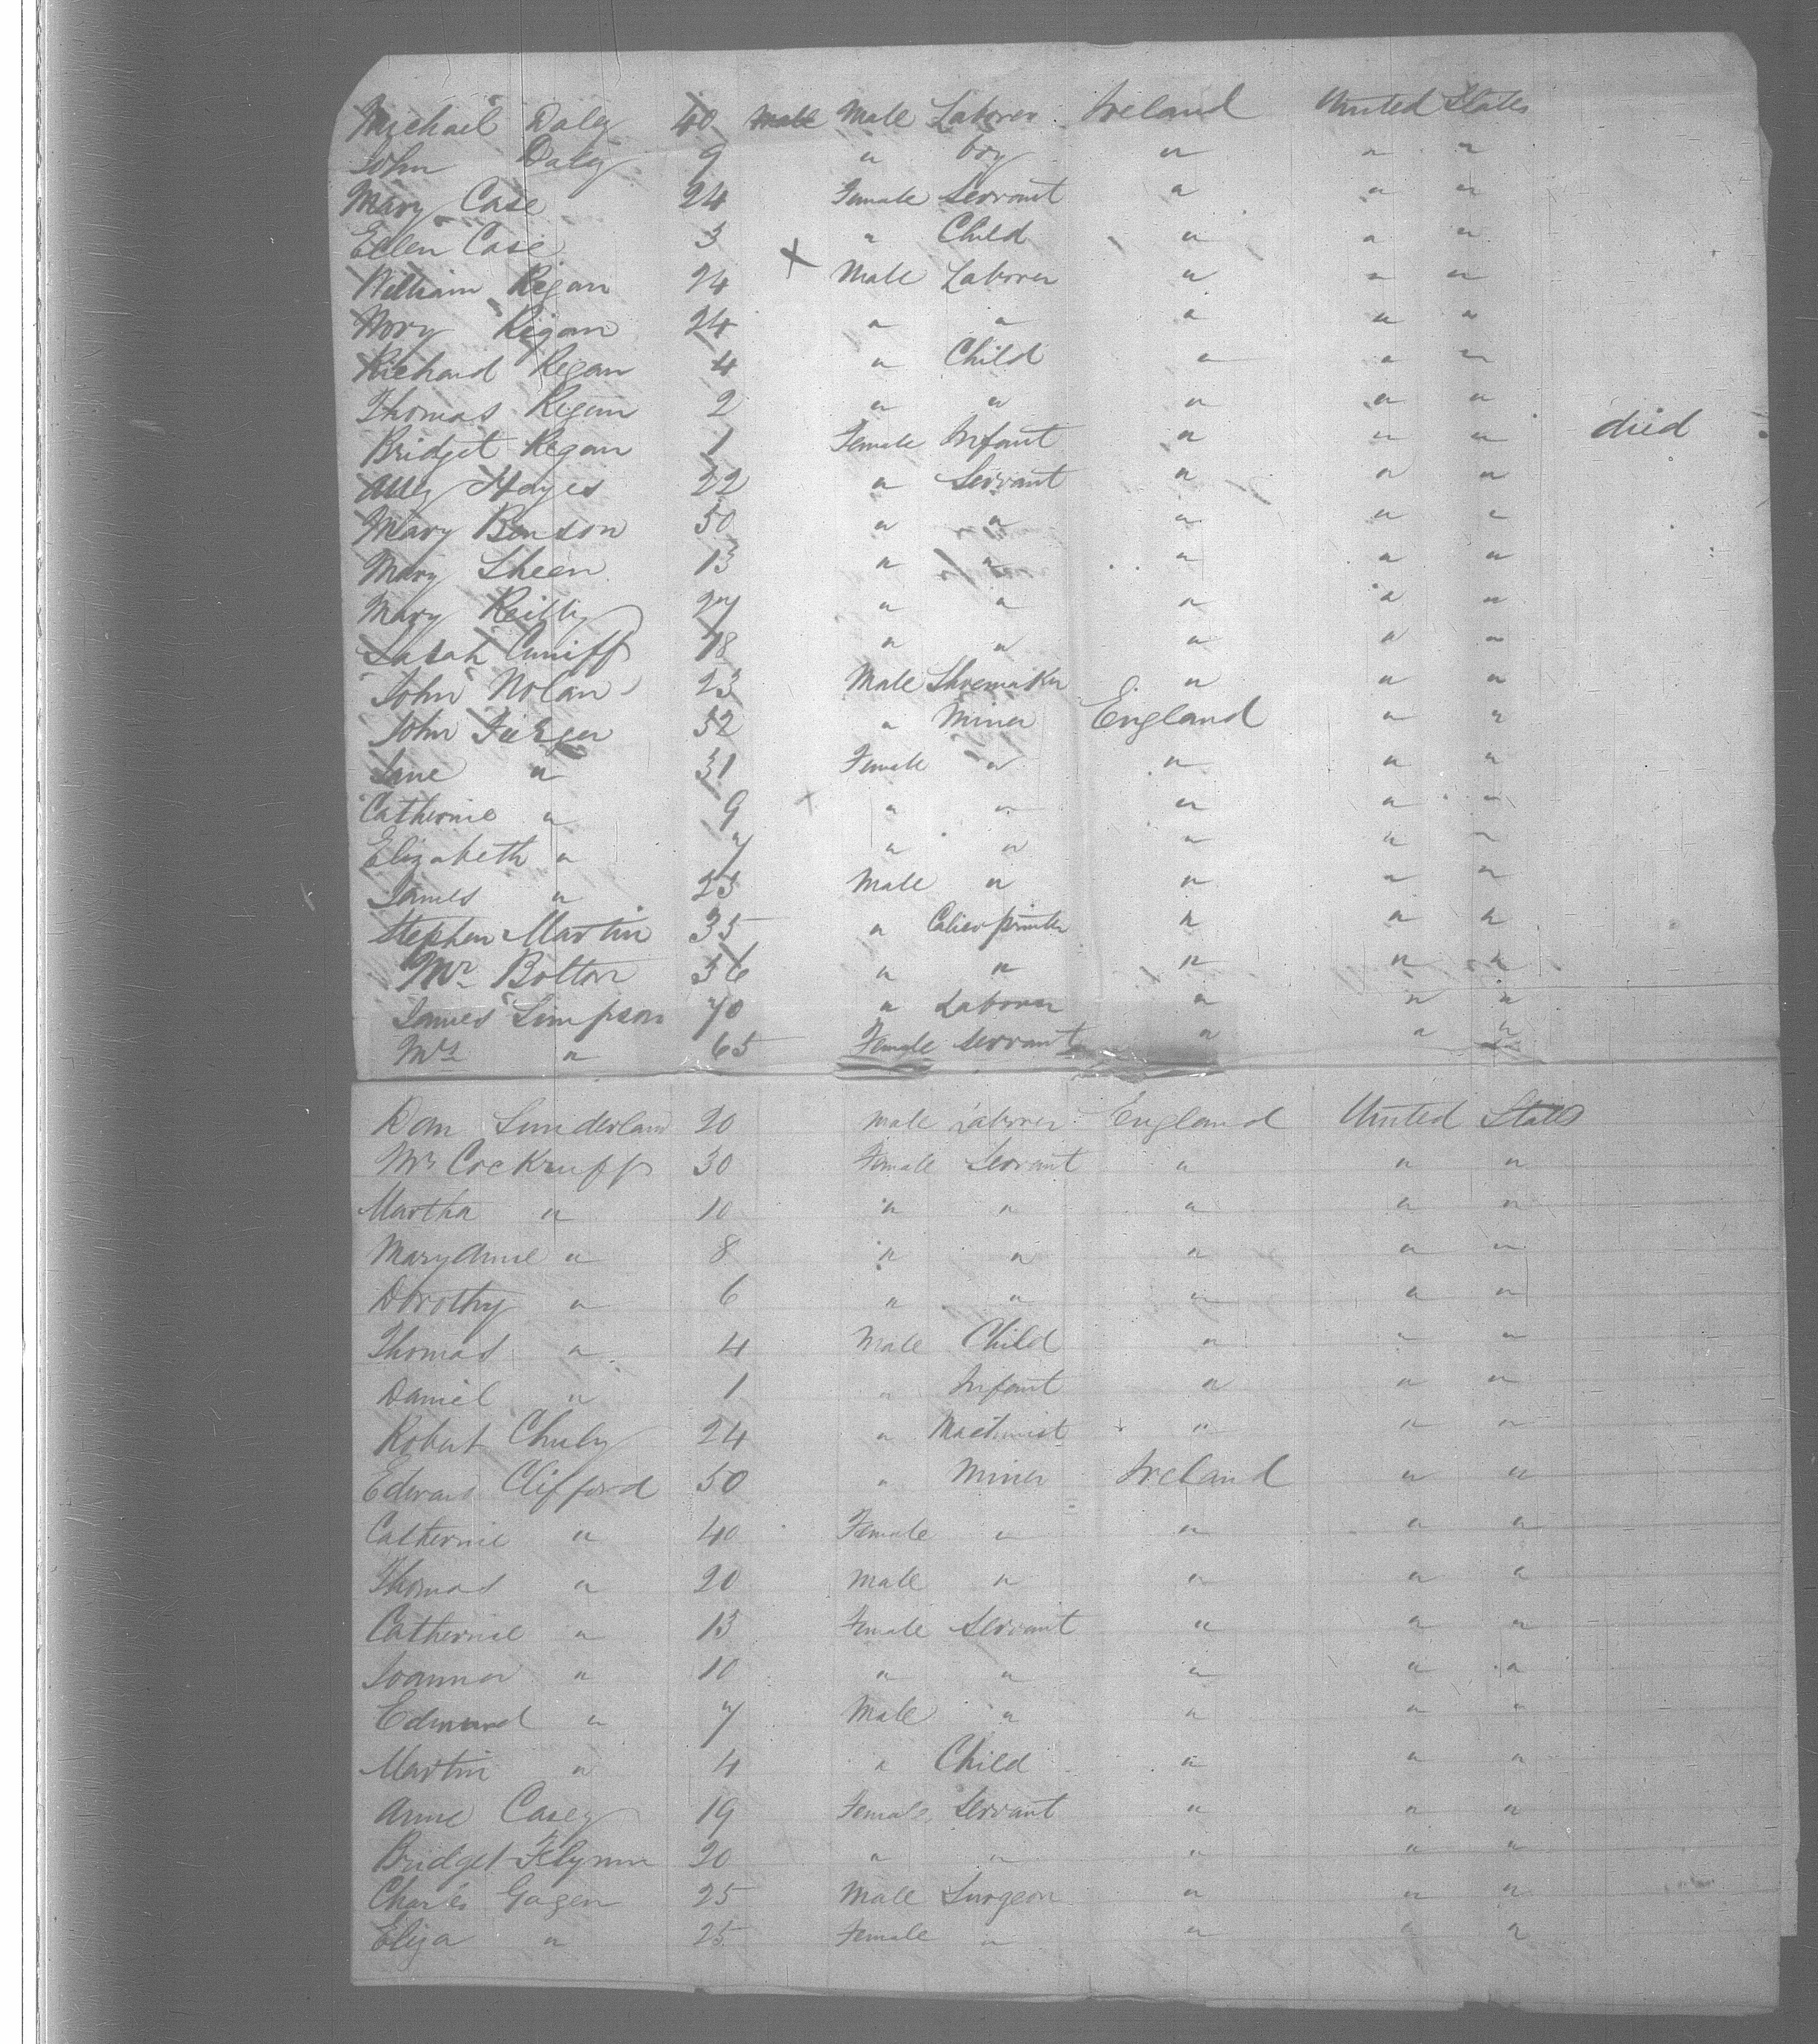 Michael Daly 40 male Male Laborer Ireland United States
John Daly 9 " boy " " "
Mary Case 24 Female Servant " " "
Ellen Case 3 " Child " " "
William Regan 24 Male Laborer " " "
Mary Regan 24 " " " " "
Richard Regan 4 " Child " " "
Thomas Regan 2 " " " " "
Bridget Regan 1 Female Infant " " " died
Ally Hayes 22 " Servant " " "
Mary Benson 50 " " " " "
Mary Sheen 13 " " " " "
Mary Reilly 27 " " " " "
Sarah Cuniff 18 " " " " "
John Nolan 23 Male Shoemaker " " "
John 52 " Miner England " "
Jane " 31 Female " " " "
Catherine " 9 " " " " "
Elizabeth " 7 " " " " "
James " 23 Male " " " "
Stephen Martin 35 " Calico printer " " "
Mr Bolton 36 " " " " "
James Simpson 70 " Laborer " " "
Mrs " 65 Female Servant " " "
Dan Sunderland 20 Male Laborer England United States
Mrs Cockruff 30 Female Servant " " "
Martha " 10 " " " " "
Mary Anne " 8 " " " " "
Dorothy " 6 " " " " "
Thomas " 4 Male Child " " "
Daniel " 1 " Infant " " "
Robert 24 " Machinist " " "
Edward Clifford 50 " Miner Ireland " "
Catherine " 40 Female " " " "
Thomas " 20 Male " " " "
Catherine " 13 Female Servant " " "
Joanna " 10 " " " " "
Edmund " 7 Male " " " "
Martin " 4 " Child " " "
Anne Casey 19 Female Servant " " "
Bridget Flynn 20 " " " " "
Charles Gagen 25 Male Surgeon " " "
Eliza " 25 Female " " " "